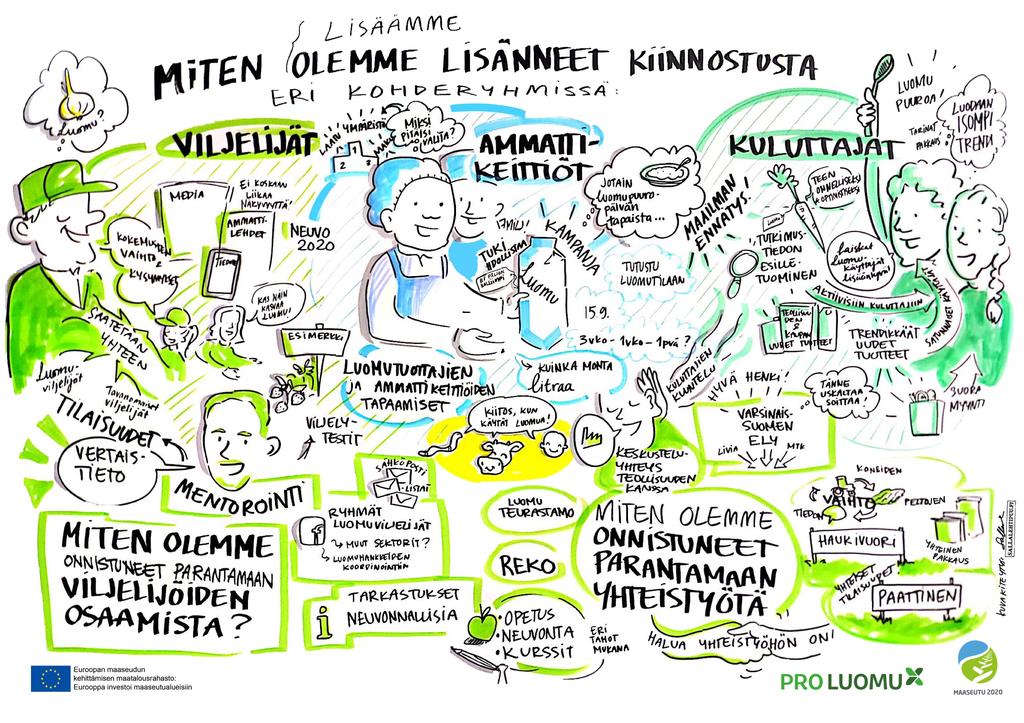 LISÄÄMME
MITEN OLEMME LISÄNNEET KIINNOSTUSTA
ERI KOHDERYHMISSÄ:
Luomu?
VILJELIJÄT
MEDIA
EI KOSKAAN
LIIKAA
NÄKYVYYTTÄ
AMMATTI-
LEHDET
TIEDON
NEUVO
2020
KOKEMUSTEN
VAIHTO &
KYSYMYKSET
KAS NÄIN
KASVAA
LUOMU!
SAATETAAN
YHTEEN
Luomu-
viljelijät
Tavanomaiset
viljelijät
ESIMERKI
VILJELY-
TESTIT
TILAISUUDET
VERTAIS-
TIETO
MENTOROINTI
AMMATTI-
KEITTIÖT
1 2 3
Miksi
pitäisi
valita?
JOTAIN
luomupuuro-
päivän
tapaista...
TUKI
KAMPANJA
luomu
TUTUSTU
LUOMUTILAAN
15.9.
3vko - 1vko - 1pvä?
LUOMUTUOTTAJIEN
JA AMMATTIKEITTIÖIDEN
TAPAAMISET
KUINKA MONTA
litraa
KIITOS, KUN
KÄYTÄT LUOMUA!
KULUTTAJAT
MAAILMAN
ENNÄTYS!
LUOMU
PUUROA!
TARINAT
PAKKAUS
LUODAAN
ISOMPI
TRENDI
TEEN
ONNELLISEKSI
& OPTIMISTISEKSI
TUTKIMUS-
TIEDON
ESILLE-
TUOMINEN
Laiskat
luomu-
käyttäjät
lisääntyvät
AKTIIVISIIN KULUTTAJIIN
SATUNNAISET KÄYTTÄJÄT
TEOLLISUU
DEN
&
KAUPAN
UUDET TUOTTEET
TRENDIKKÄÄT
UUDET
TUOTTEET
SUORA
MYYNTI
KULUTTAJIEN
KUUNTELU
HYVÄ HENKI!
TÄNNE
USKALTAA
SOITTAA!
VARSINAIS-
SUOMEN
ELY
LIVIA
MTK
KESKUSTELU-
YHTEYS
TEOLLISUUDEN
KANSSA
MITEN OLEMME
ONNISTUNEET PARANTAMAAN
VILJELIJÖIDEN
OSAAMISTA?
SÄHKÖPOSTI
-LISTAT
RYHMÄT
LUOMUVILJELIJÄT
MUUT SEKTORIT?
LUOMUHANKKEIDEN
KOORDINOINTIIN
TARKASTUKSET
NEUVONNALLISIA
LUOMU
TEURASTAMO
REKO
•OPETUS
•NEUVONTA
•KURSSIT
ERI
TAHOT
MUKANA
MITEN OLEMME
ONNISTUNEET
PARANTAMAAN
YHTEISTYÖTÄ
HALUA YHTEISTYÖHÖN ON!
KONEIDEN
VAIHTO
PELTOJEN
TIEDON
HAUKIVUORI
YHTEINEN
PAKKAUS
YHTEISET
TILAISUUDET
PAATTINEN
SALLALEHTIPUU.FI
Euroopan maaseudun
kehittämisen maatalousrahasto:
Eurooppa investoi maaseutualueisiin
PRO LUOMU
MAASEUTU 2020